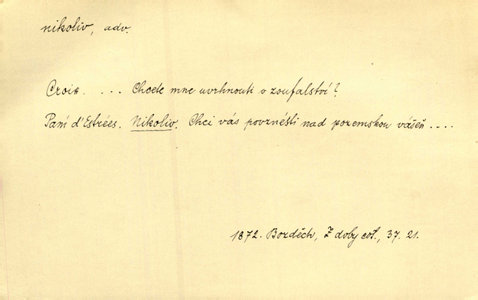 nikoliv, adv.
Croix. ... Chcete mne uvrhnouti v zoufalství?
Paní d'Estrées. Nikoliv. Chci vás povznésti nad pozemskou vášeň ....
1872. Bozděch, Z doby cot., 37. 21.